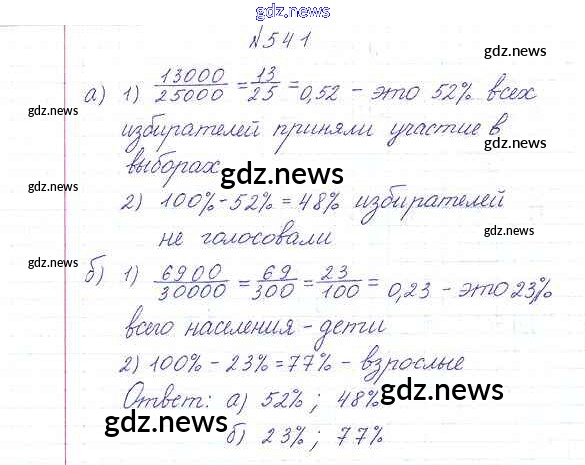 gdz.news
№541
gdz.news
а) 1) 13000/25000 = 13/25 = 0,52 – это 52% всех
gdz.news
избирателей приняли участие в
gdz.news
выборах
gdz.news
gdz.news
2) 100%-52%=48% избирателей
не голосовали
gdz.news
gdz.news
б) 1) 6900/30000 = 69/300 = 23/100 = 0,23 – это 23%
gdz.news
всего населения - дети
2) 100% - 23% = 77% - взрослые
Ответ: а) 52%; 48%
gdz.news
gdz.news
б) 23%; 77%